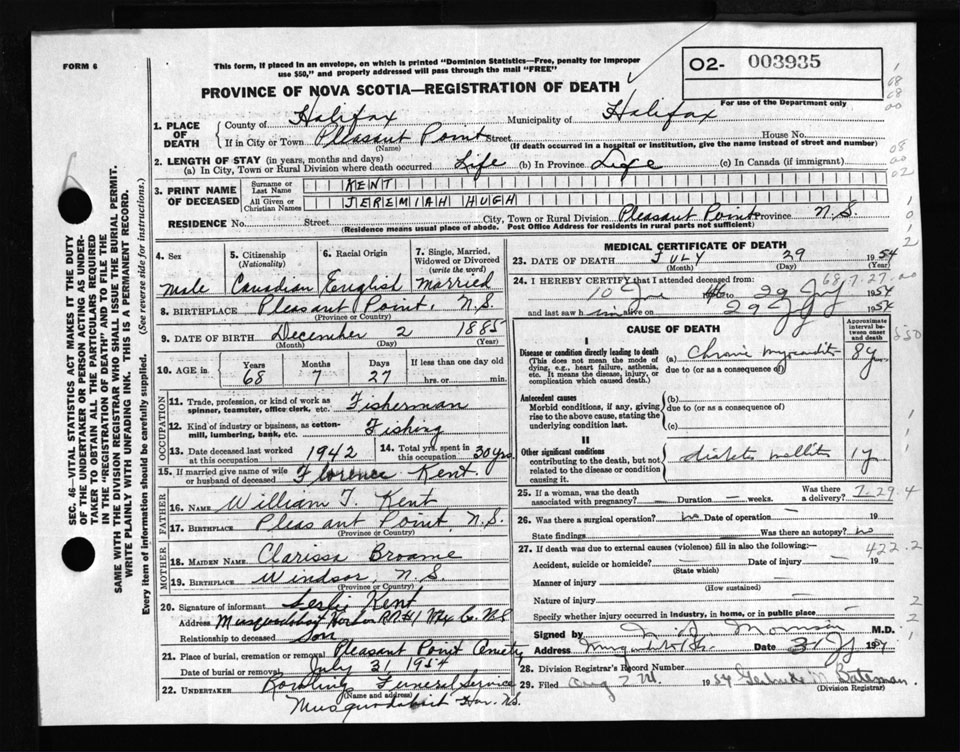 FORM 6
This form, if placed in an envelope, on which is printed "Dominion Statistics—Free, penalty for improper
use $50," and properly addressed will pass through the mail "FREE"
O2- 003935
For use of the Department only
PROVINCE OF NOVA SCOTIA—REGISTRATION OF DEATH
1. PLACE OF DEATH
County of Halifax Municipality of Halifax
If in City or Town Pleasant Point Street House No.
(Name) (If death occurred in a hospital or institution, give the name instead of street and number)
2. LENGTH OF STAY (in years, months and days)
(a) In City, Town or Rural Division where death occurred Life (b) In Province Life (c) In Canada (if immigrant)
3. PRINT NAME OF DECEASED
Surname or Last Name KENT
All Given or Christian Names JEREMIAH HUGH
RESIDENCE No. Street City, Town or Rural Division Pleasant Point Province N.S.
(Residence means usual place of abode. Post Office Address for residents in rural parts not sufficient)
4. Sex
Male
5. Citizenship (Nationality)
Canadian
6. Racial Origin
English
7. Single, Married, Widowed or Divorced (write the word)
Married
8. BIRTHPLACE Pleasant Point, N.S.
(Province or Country)
9. DATE OF BIRTH December 2 1885
(Month) (Day) (Year)
10. AGE in Years Months Days If less than one day
68 7 27 hrs. or min.
OCCUPATION
11. Trade, profession, or kind of work as spinner, teamster, office clerk, etc. Fisherman
12. Kind of industry or business, as cotton-mill, lumbering, bank, etc. Fishing
13. Date deceased last worked at this occupation 1942
14. Total yrs. spent in this occupation 30 yrs.
15. If married give name of wife or husband of deceased Florence Kent
FATHER
16. NAME William T. Kent
17. BIRTHPLACE Pleasant Point, N.S.
(Province or Country)
MOTHER
18. MAIDEN NAME Clarissa Broame
19. BIRTHPLACE Windsor, N.S.
(Province or Country)
20. Signature of informant Leslie Kent
Address Musquodoboit Harbor RR#1 Hfx Co. N.S
Relationship to deceased Son
21. Place of burial, cremation or removal Pleasant Point
Date of burial or removal July 31, 1954
22. UNDERTAKER Funeral Service
(Name and address)
Musquodoboit Har. N.S.
MEDICAL CERTIFICATE OF DEATH
23. DATE OF DEATH JULY 29 1954
(Month) (Day) (Year)
24. I HEREBY CERTIFY that I attended deceased from:
68 7.27.
10 to 29 1954
and last saw him alive on 29 1954
CAUSE OF DEATH
Approximate interval between onset and death
I
Disease or condition directly leading to death
(This does not mean the mode of dying, e.g., heart failure, asthenia, etc. It means the disease, injury, or complication which caused death.)
(a) Chronic 8 y
due to (or as a consequence of)
Antecedent causes
Morbid conditions, if any, giving rise to the above cause, stating the underlying condition last.
(b)
due to (or as a consequence of)
(c)
II
Other significant conditions contributing to the death, but not related to the disease or condition causing it.
diabetes mellitis 1 y
25. If a woman, was the death associated with pregnancy? — Duration — weeks. Was there a delivery?
26. Was there a surgical operation? no Date of operation — 19
State findings Was there an autopsy? no
27. If death was due to external causes (violence) fill in also the following:— 422.2
Accident, suicide or homicide? Date of injury 19
(State which)
Manner of injury
(How sustained)
Nature of injury
Specify whether injury occurred in industry, in home, or in public place
Signed by M.D.
Address Date 31 1954
28. Division Registrar's Record Number
29. Filed Aug 1954 Gertrude Bateman
(Division Registrar)
SEC. 46—VITAL STATISTICS ACT MAKES IT THE DUTY
OF THE UNDERTAKER OR PERSON ACTING AS UNDER-
TAKER TO OBTAIN ALL THE PARTICULARS REQUIRED
IN THE "REGISTRATION OF DEATH" AND TO FILE THE
SAME WITH THE DIVISION REGISTRAR WHO SHALL ISSUE THE BURIAL PERMIT.
WRITE PLAINLY WITH UNFADING INK. THIS IS A PERMANENT RECORD.
Every item of information should be carefully supplied. (See reverse side for instructions.)